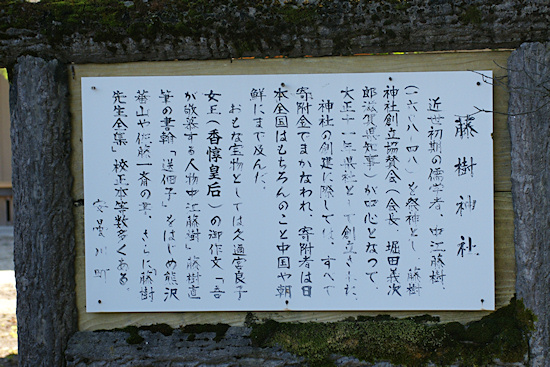 藤樹神社
近世初期の儒学者、中江藤樹
(一六〇八-四八)を祭神とし、藤樹
神社創立協賛会(会長 堀田義次
郎滋賀県知事)が中心となって、
大正十一年県社として創立された。
神社の創建に際しては、すべて
寄附金でまかなわれ、寄附者は日
本全国はもちろんのこと中国や朝
鮮にまで及んだ。
おもな宝物としては久邇宮良子
女王(香惇皇后)の御作文「吾
が敬慕する人物中江藤樹」藤樹直
筆の書翰「送佃子」をはじめ熊沢
蕃山や佐藤一斎の書、さらに藤樹
先生全集」校正本等数多くある。
安曇川町